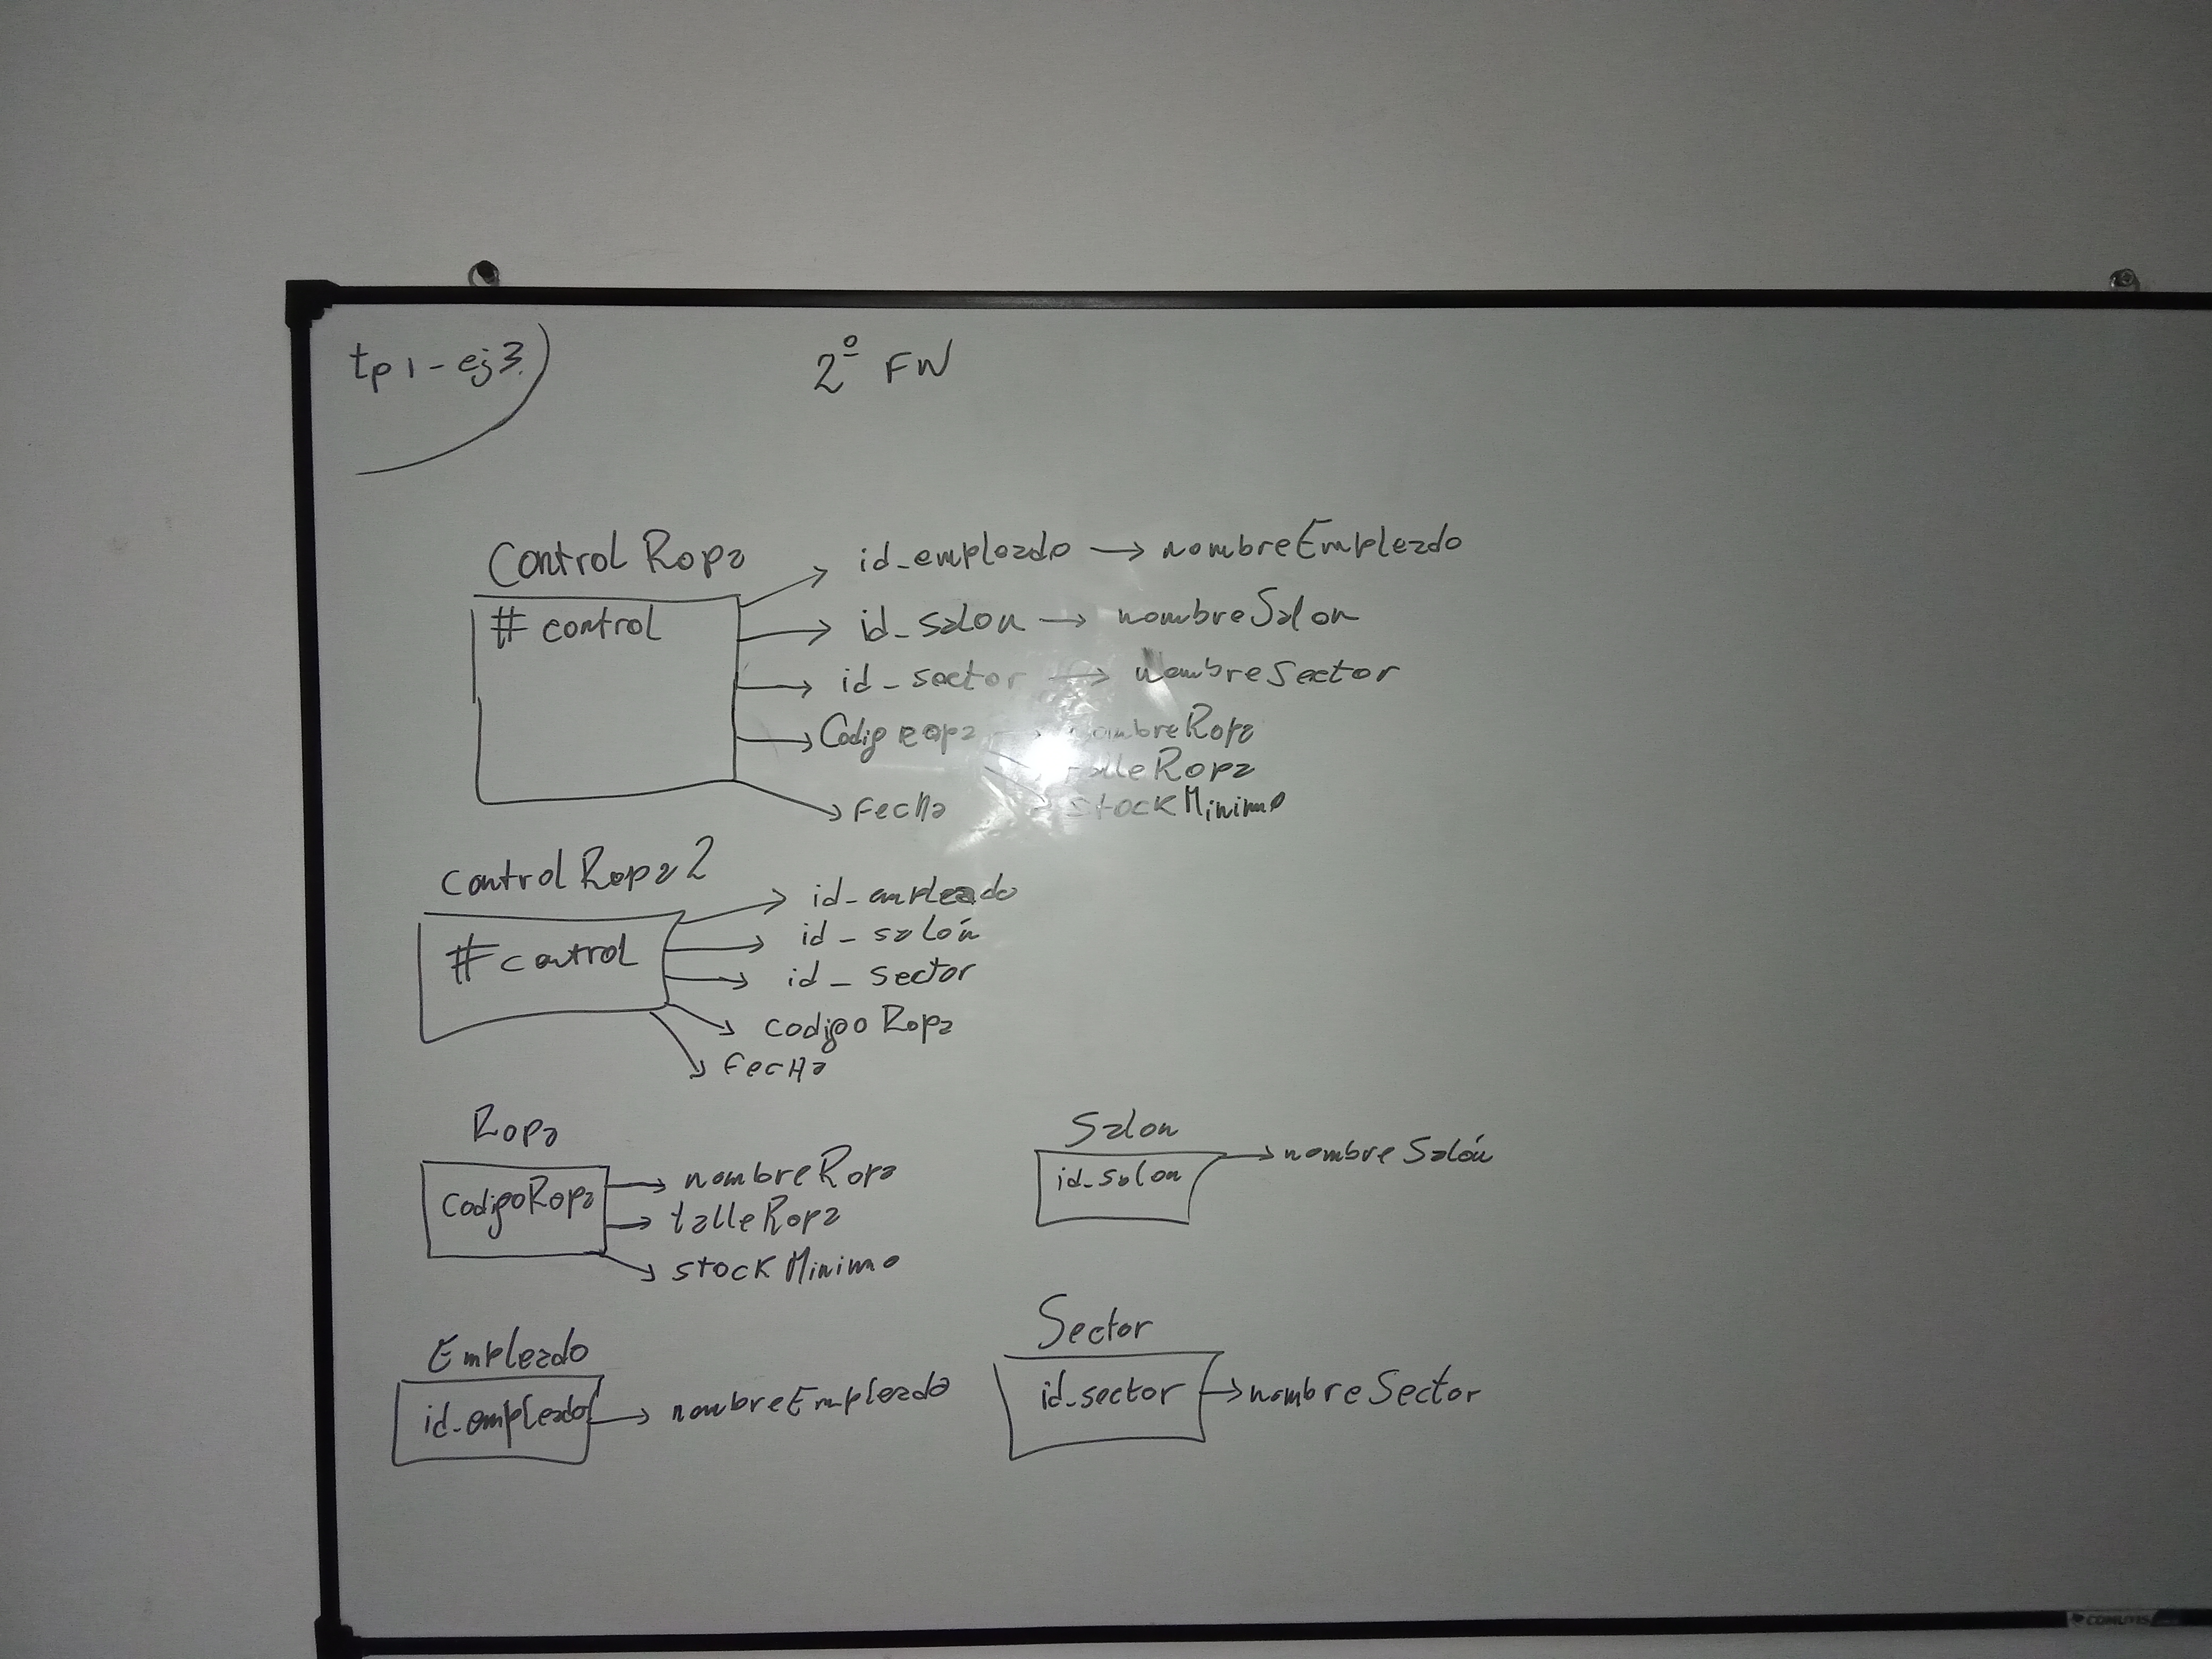 tp1-ej3)
2º FN
Control Ropa
# control
id_empleado → nombreEmpleado
id_salon → nombreSalon
id_sector → nombreSector
Codigo Ropa → nombreRopa
talleRopa
stockMinimo
Fecha
control Ropa 2
# control
id_empleado
id_salón
id_sector
codigo Ropa
Fecha
Ropa
CodigoRopa → nombreRopa
→ talleRopa
→ stockMinimo
Salon
id_salon → nombreSalón
Empleado
id_empleado → nombreEmpleado
Sector
id_sector → nombreSector